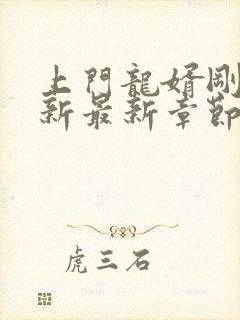 上門龍婿剛
新最新章節
虎三石